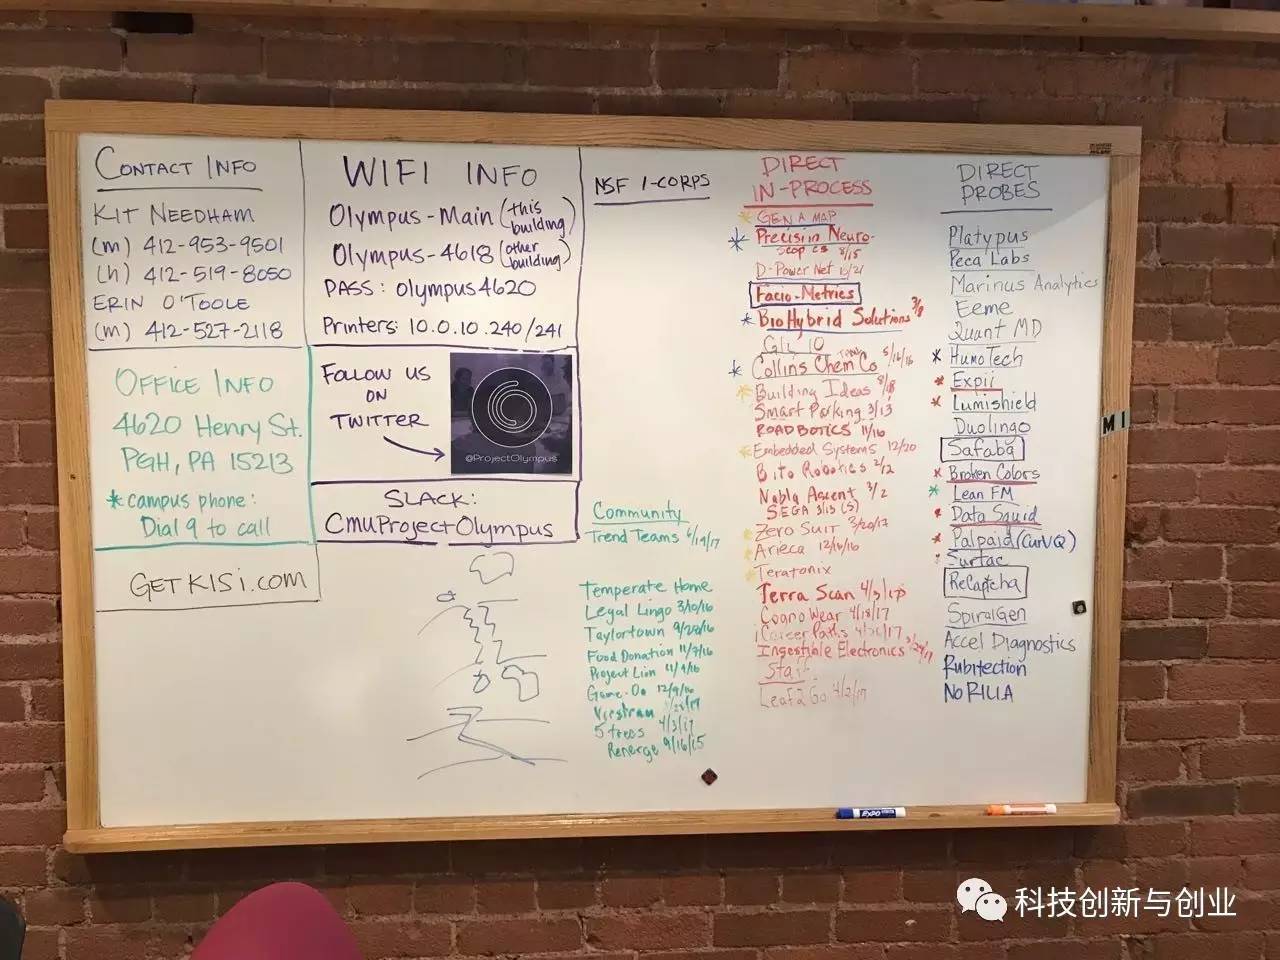 CONTACT INFO
KIT NEEDHAM
(m) 412-953-9501
(h) 412-519-8050
ERIN O'TOOLE
(m) 412-527-2118
OFFICE INFO
4620 Henry St.
PGH, PA 15213
* campus phone:
Dial 9 to call
GETKISI.COM
WIFI INFO
Olympus-Main (this building)
Olympus-4618 (other building)
PASS: olympus4620
Printers: 10.0.10.240/241
FOLLOW US
ON
TWITTER
@ProjectOlympus
SLACK:
CmuProjectOlympus
NSF I-CORPS
Community
Trend Teams 6/19/17
Temperate Home
Legal Lingo 3/10/16
Taylortown 9/28/16
Food Donation 11/7/16
Project Lion 11/9/16
Game-On 12/9/16
5 trees 4/3/17
Renerge 9/16/15
DIRECT
IN-PROCESS
GEN A MAP
* Precision Neuro-
scopics 8/15
D-Power Net 10/21
Facio-Metrics
* BioHybrid Solutions 3/8
* Collins Chem Co 5/16/16
* Building Ideas 8/18
Smart Parking 3/13
ROADBOTICS 11/16
* Embedded Systems 12/20
Bito Robotics 2/2
Nabla Ascent 3/2
SEGA 3/13 (S)
* Zero Suit 3/20/17
* Arieca 12/16/16
* Teratonix
Terra Scan 4/3/17
Cogno Wear 4/18/17
Career Paths 4/26/17
Ingestible Electronics 3/29/17
Leaf2Go 4/2/17
DIRECT
PROBES
Platypus
Peca Labs
Marinus Analytics
Eeme
Quant MD
* HumoTech
* Expii
* Lumishield
Duolingo
Safaba
* Broken Colors
* Lean FM
* Data Squid
* Palpaid (CurvQ)
Surtrac
ReCaptcha
SpiralGen
Accel Diagnostics
Rubitection
NoRILLA
MI
EXPO
科技创新与创业